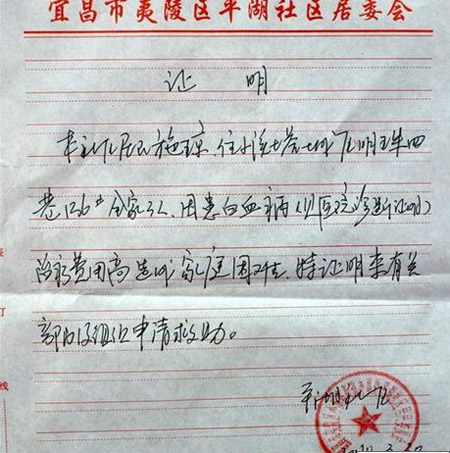 宜昌市夷陵区平湖社区居委会
证 明
本社区居民施琼，住小溪塔城区明珠四
巷126#全家3人，因患白血病（见医院诊断证明）
治疗费用高造成家庭困难，特证明来有关
部门及组织申请救助。
平湖社区
订
线